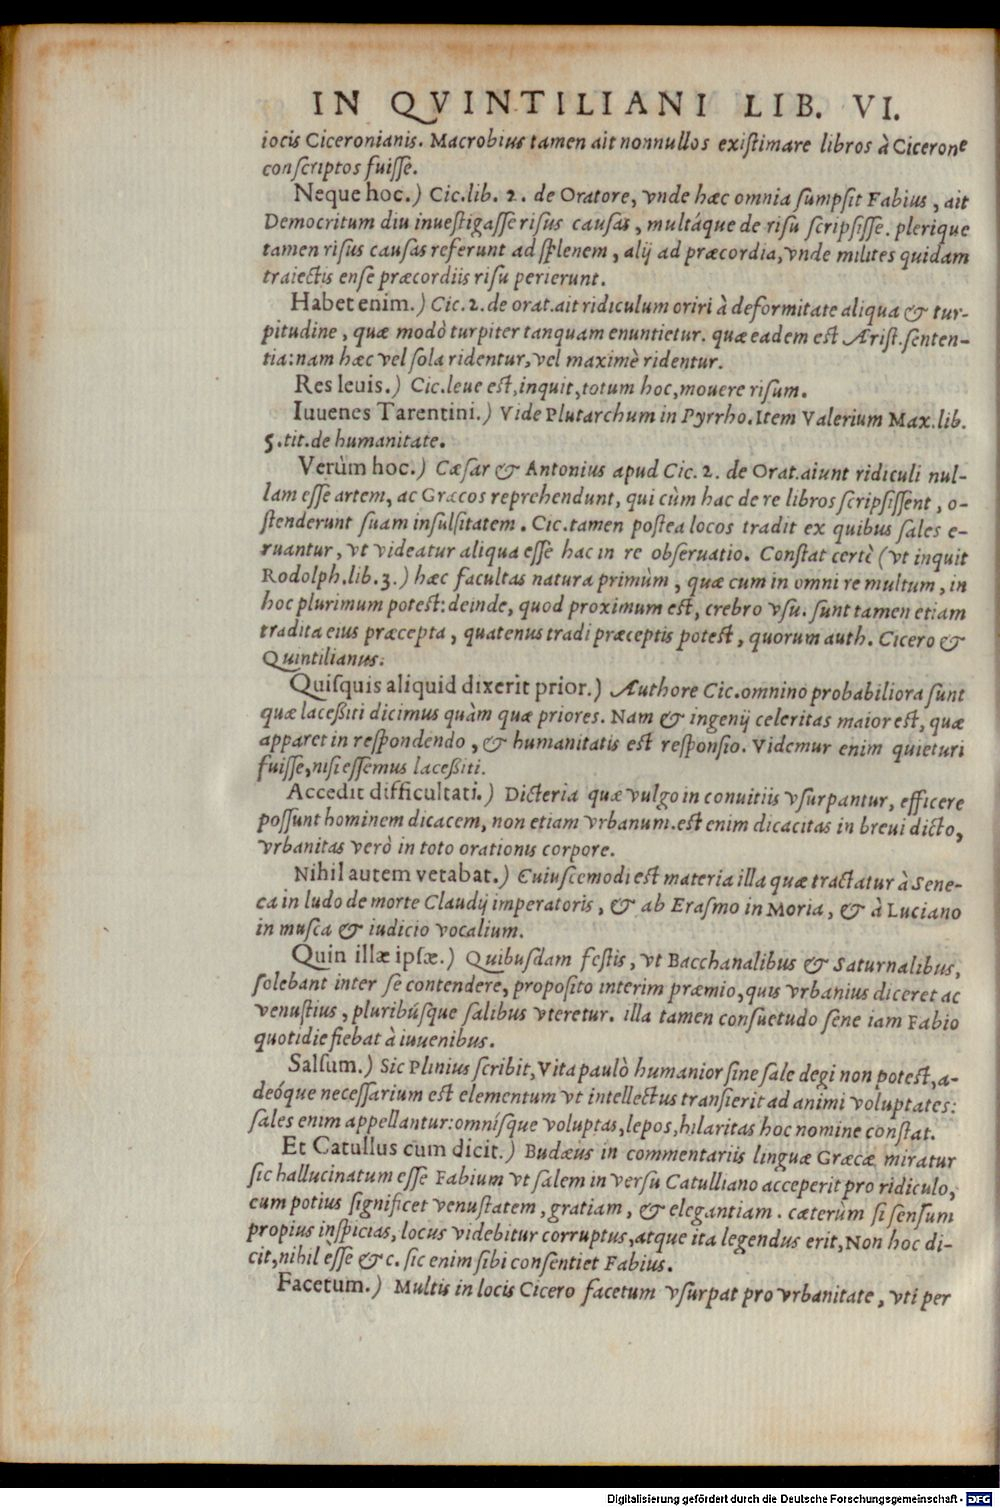 IN QVINTILIANI LIB. VI.
iocis Ciceronianis. Macrobius tamen ait nonnullos existimare libros à Cicerone
conscriptos fuisse.
Neque hoc.) Cic.lib. 2. de Oratore, vnde hæc omnia sumpsit Fabius, ait
Democritum diu inuestigasse risus causas, multáque de risu scripsisse. plerique
tamen risus causas referunt ad splenem, alij ad præcordia, vnde milites quidam
traiectis ense præcordiis risu perierunt.
Habet enim.) Cic.2.de orat.ait ridiculum oriri à deformitate aliqua & tur-
pitudine, quæ modò turpiter tanquam enuntietur. quæ eadem est Arist.senten-
tia:nam hæc vel sola ridentur, vel maximè ridentur.
Res leuis.) Cic.leue est,inquit,totum hoc,mouere risum.
Iuuenes Tarentini.) Vide Plutarchum in Pyrrho.Item Valerium Max.lib.
5.tit.de humanitate.
Verùm hoc.) Cæsar & Antonius apud Cic.2. de Orat.aiunt ridiculi nul-
lam esse artem, ac Græcos reprehendunt, qui cùm hac de re libros scripsissent, o-
stenderunt suam insulsitatem. Cic.tamen postea locos tradit ex quibus sales e-
ruantur, vt videatur aliqua esse hac in re obseruatio. Constat certè (vt inquit
Rodolph.lib.3.) hæc facultas natura primùm, quæ cum in omni re multum, in
hoc plurimum potest:deinde, quod proximum est, crebro vsu. sunt tamen etiam
tradita eius præcepta, quatenus tradi præceptis potest, quorum auth. Cicero &
Quintilianus.
Quisquis aliquid dixerit prior.) Authore Cic.omnino probabiliora sunt
quæ laceßiti dicimus quàm quæ priores. Nam & ingenij celeritas maior est, quæ
apparet in respondendo, & humanitatis est responsio. Videmur enim quieturi
fuisse,nisi essemus laceßiti.
Accedit difficultati.) Dicteria quæ vulgo in conuitiis vsurpantur, efficere
possunt hominem dicacem, non etiam vrbanum.est enim dicacitas in breui dicto,
vrbanitas verò in toto orationis corpore.
Nihil autem vetabat.) Cuiuscemodi est materia illa quæ tractatur à Sene-
ca in ludo de morte Claudij imperatoris, & ab Erasmo in Moria, & à Luciano
in musca & iudicio vocalium.
Quin illæ ipsæ.) Quibusdam festis, vt Bacchanalibus & Saturnalibus,
solebant inter se contendere, proposito interim præmio, quis vrbanius diceret ac
venustius, pluribúsque salibus vteretur. illa tamen consuetudo sene iam Fabio
quotidie fiebat à iuuenibus.
Salsum.) Sic Plinius scribit, Vita paulò humanior sine sale degi non potest,a-
deóque necessarium est elementum vt intellectus transierit ad animi voluptates:
sales enim appellantur:omnísque voluptas,lepos,hilaritas hoc nomine constat.
Et Catullus cum dicit.) Budæus in commentariis linguæ Græcæ miratur
sic hallucinatum esse Fabium vt salem in versu Catulliano acceperit pro ridiculo,
cum potius significet venustatem, gratiam, & elegantiam. cæterùm si sensum
propius inspicias, locus videbitur corruptus,atque ita legendus erit,Non hoc di-
cit,nihil èsse & c. sic enim sibi consentiet Fabius.
Facetum.) Multis in locis Cicero facetum vsurpat pro vrbanitate, vti per
Digitalisierung gefördert durch die Deutsche Forschungsgemeinschaft - DFG